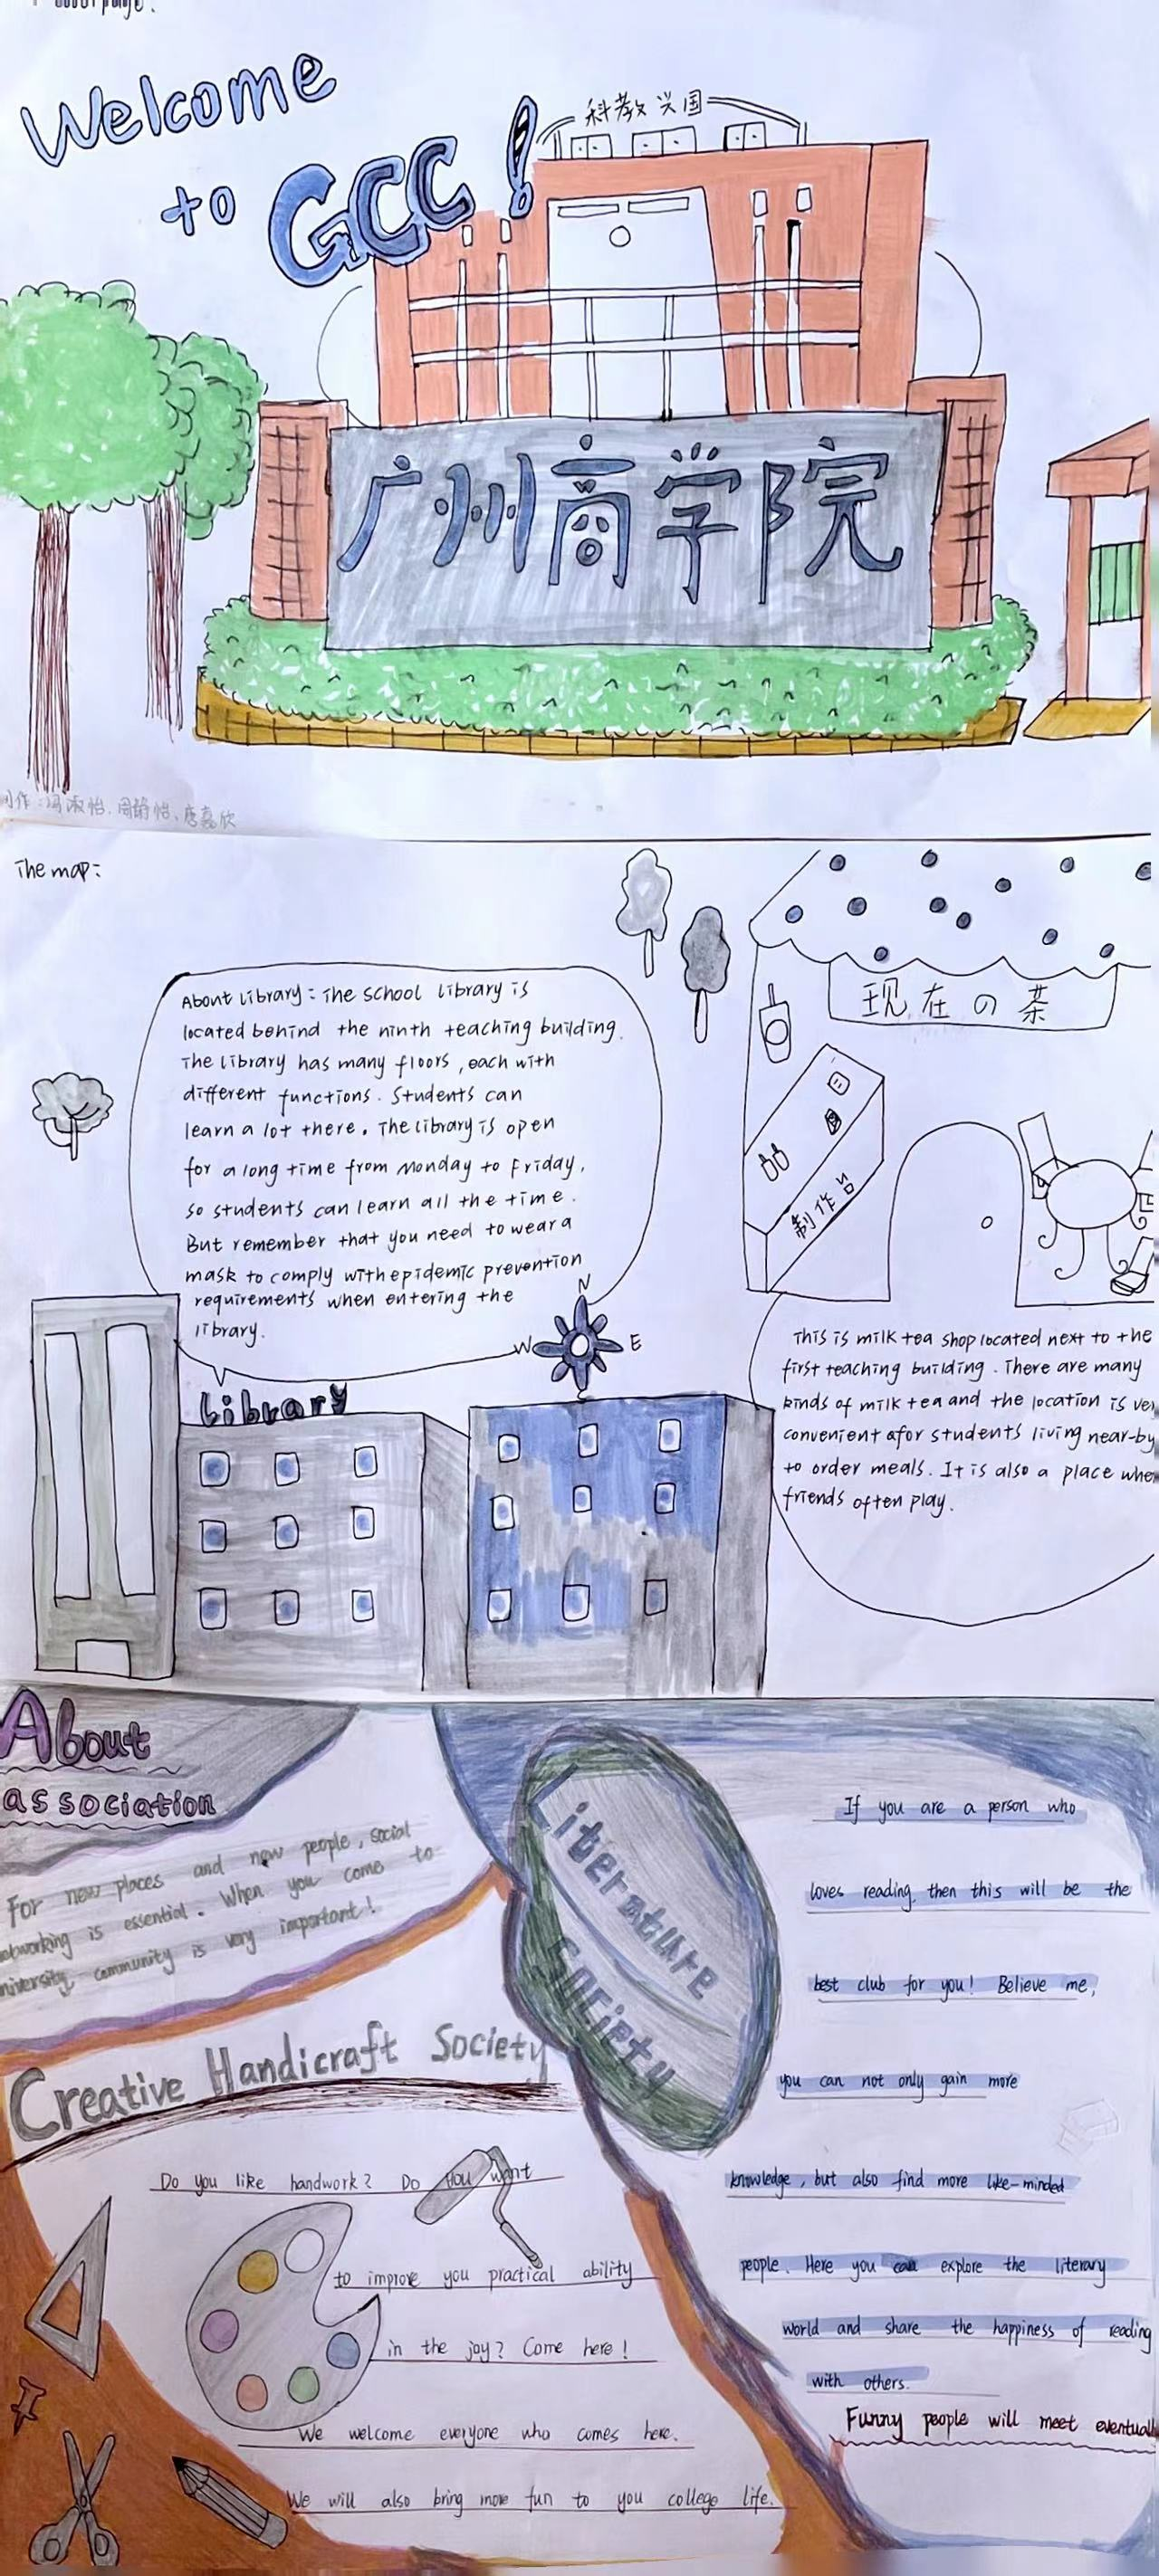 Welcome
to GCC!
科教兴国
广州商学院
制作:冯淑怡、周韵怡、唐嘉欣
The map:
About Library: The school library is
located behind the ninth teaching building.
The library has many floors, each with
different functions. Students can
learn a lot there. The library is open
for a long time from Monday to Friday,
so students can learn all the time.
But remember that you need to wear a
mask to comply with epidemic prevention
requirements when entering the
library.
N
W E
Library
现在の茶
制作台
This is milk tea shop located next to the
first teaching building. There are many
kinds of milk tea and the location is ver
convenient afor students living near-by
to order meals. It is also a place whe
friends often play.
About
association
For new places and new people, social
networking is essential. When you come to
university, community is very important!
Creative Handicraft Society
Do you like handwork? Do you want
to improve you practical ability
in the joy? Come here!
We welcome everyone who comes here.
We will also bring more fun to you college life.
Literature
society
If you are a person who
loves reading, then this will be the
best club for you! Believe me,
you can not only gain more
knowledge, but also find more like-minded
people. Here you can explore the literary
world and share the happiness of reading
with others.
Funny people will meet eventuall